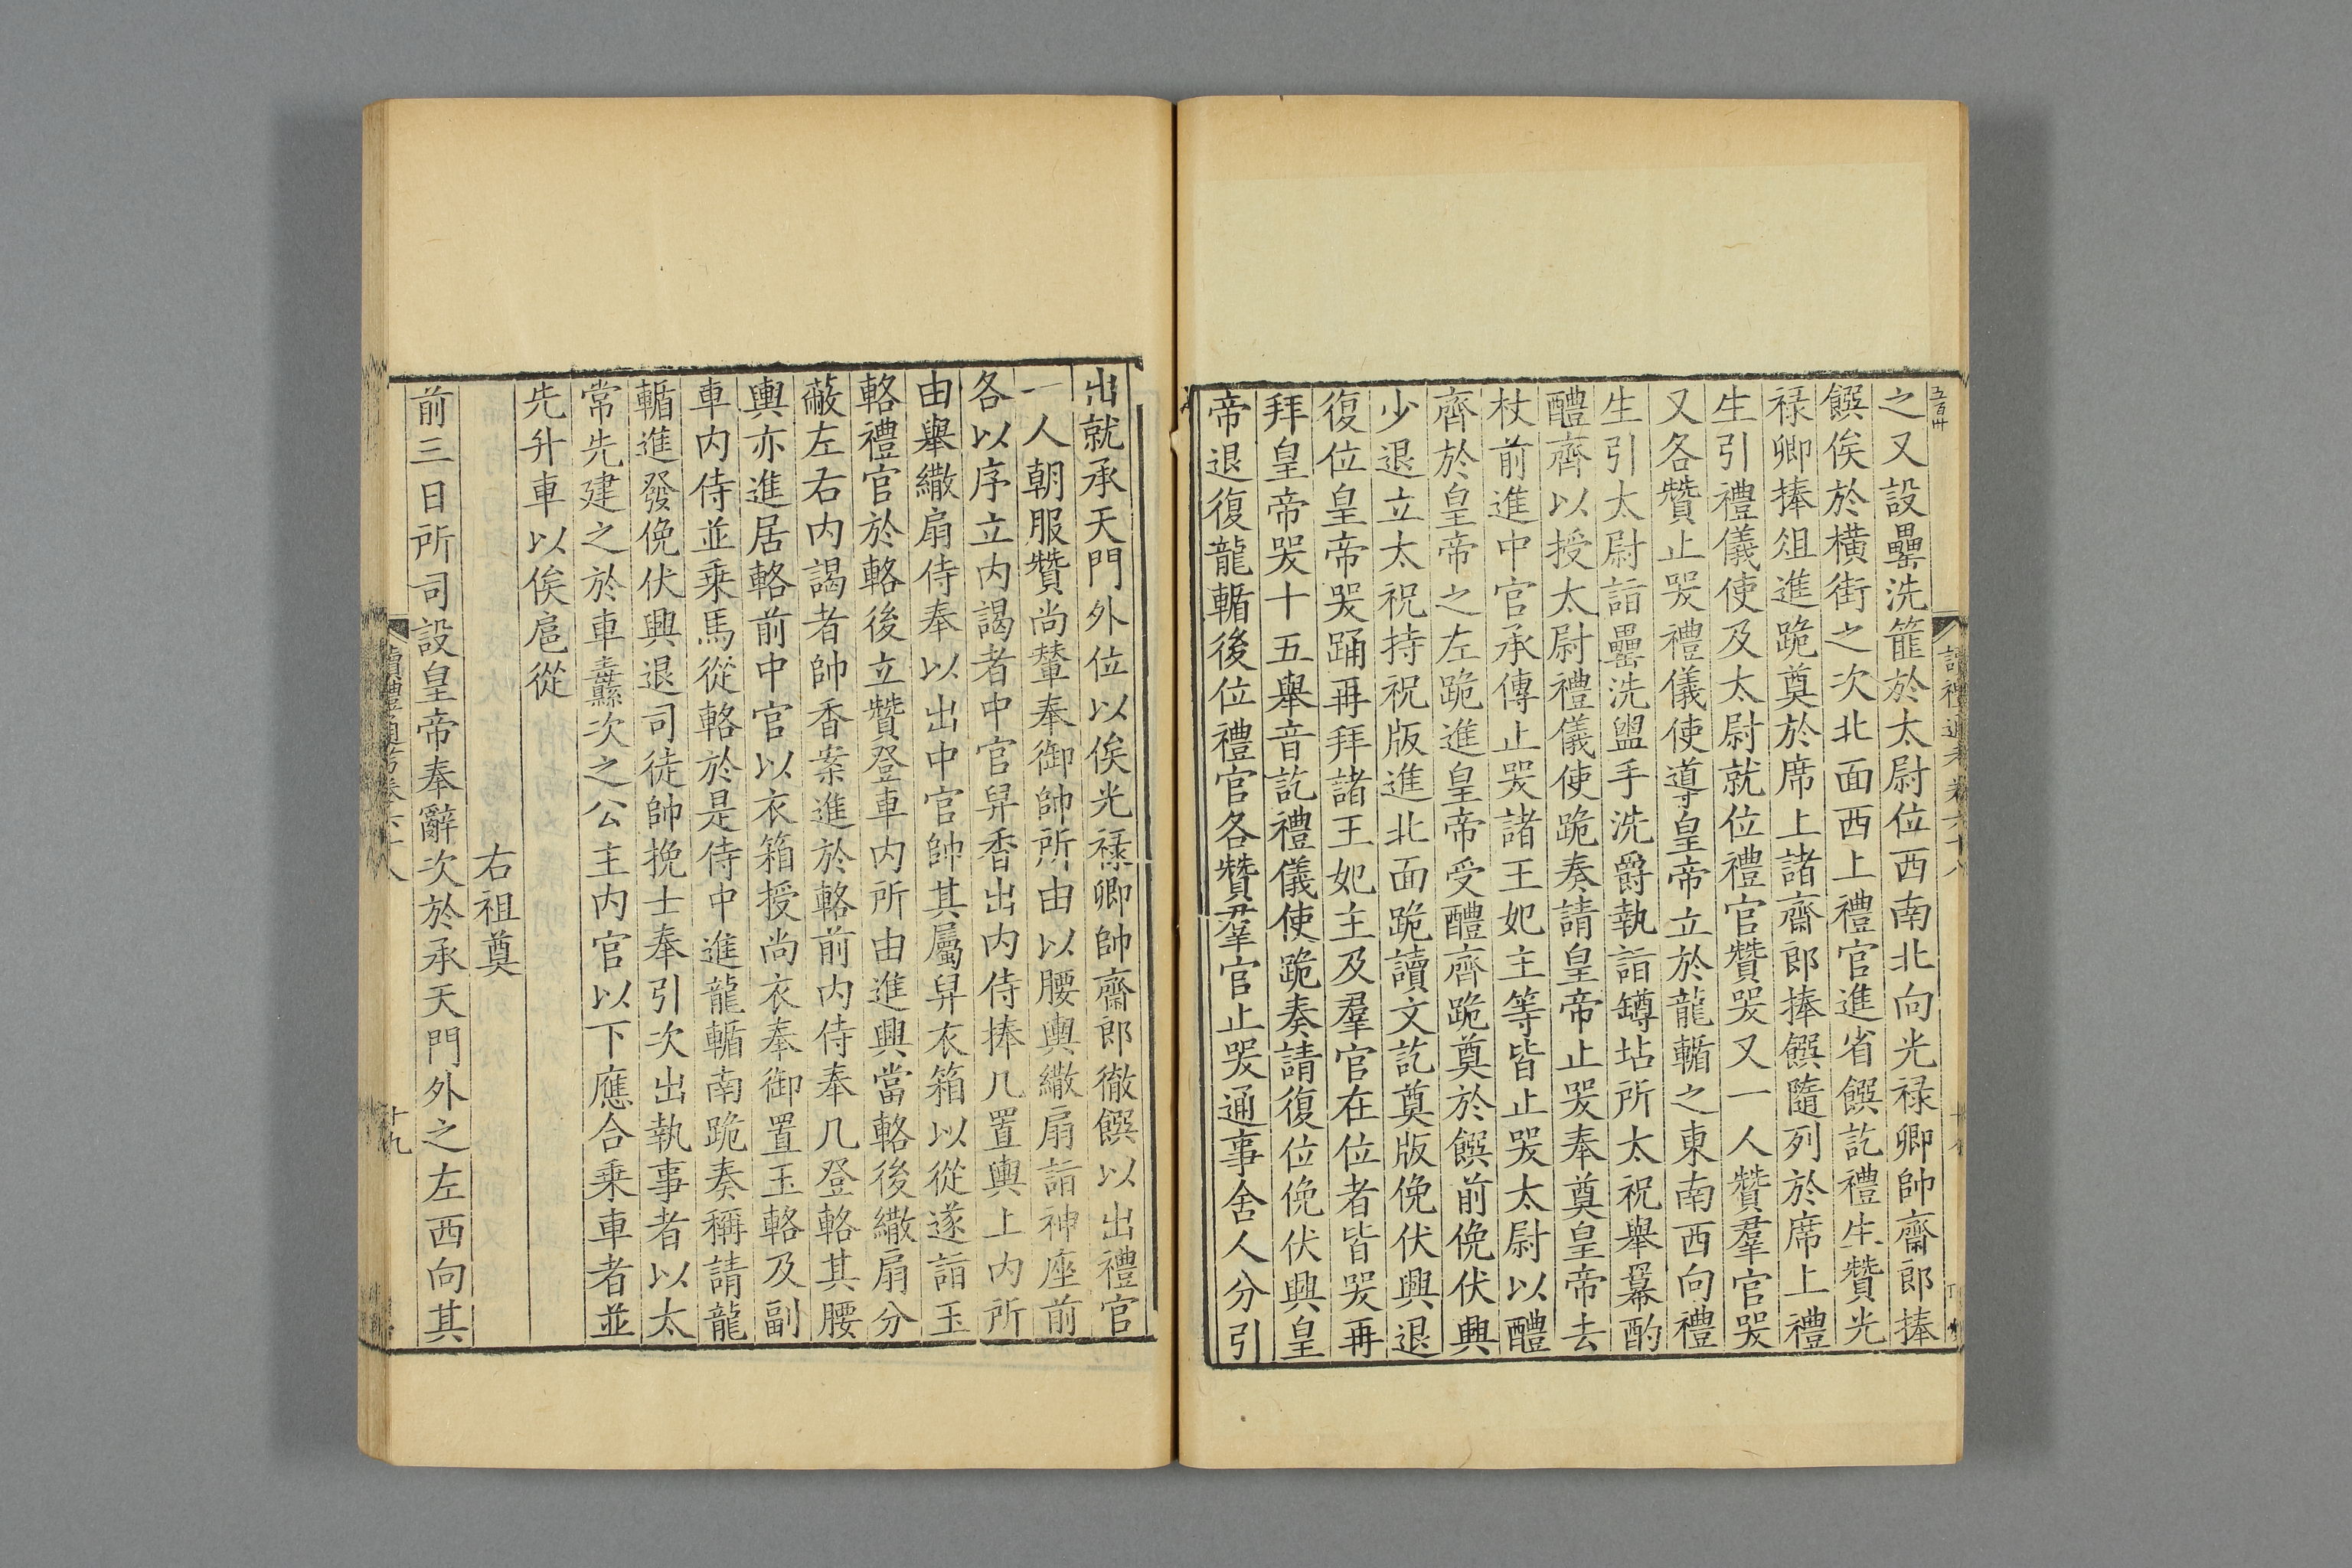 五百卅
之又設罍洗篚於太尉位西南北向光禄卿帥齋郎捧
饌俟於橫街之次北面西上禮官進省饌訖禮生贊光
禄卿捧俎進跪奠於席上諸齋郎捧饌隨列於席上禮
生引禮儀使及太尉就位禮官贊哭又一人贊羣官哭
又各贊止哭禮儀使導皇帝立於龍輴之東南西向禮
生引太尉詣罍洗盥手洗爵執詣罇坫所太祝舉羃酌
醴齊以授太尉禮儀使跪奏請皇帝止哭奉奠皇帝去
杖前進中官承傳止哭諸王妃主等皆止哭太尉以醴
齊於皇帝之左跪進皇帝受醴齊跪奠於饌前俛伏興
少退立太祝持祝版進北面跪讀文訖奠版俛伏興退
復位皇帝哭踊再拜諸王妃主及羣官在位者皆哭再
拜皇帝哭十五舉音訖禮儀使跪奏請復位俛伏興皇
帝退復龍輴後位禮官各贊羣官止哭通事舍人分引
出就承天門外位以俟光禄卿帥齋郎徹饌以出禮官
一人朝服贊尚輦奉御帥所由以腰輿繖扇詣神座前
各以序立内謁者中官舁香出内侍捧几置輿上内所
由舉繖扇侍奉以出中官帥其屬舁衣箱以從遂詣玉
輅禮官於輅後立贊登車内所由進輿當輅後繖扇分
蔽左右内謁者帥香案進於輅前内侍奉几登輅其腰
輿亦進居輅前中官以衣箱授尚衣奉御置玉輅及副
車内侍並乘馬從輅於是侍中進龍輴南跪奏稱請龍
輴進發俛伏興退司徒帥挽士奉引次出執事者以太
常先建之於車纛次之公主内官以下應合乘車者並
先升車以俟扈從
右祖奠
前三日所司設皇帝奉辭次於承天門外之左西向其
讀禮通考卷六十八
十九